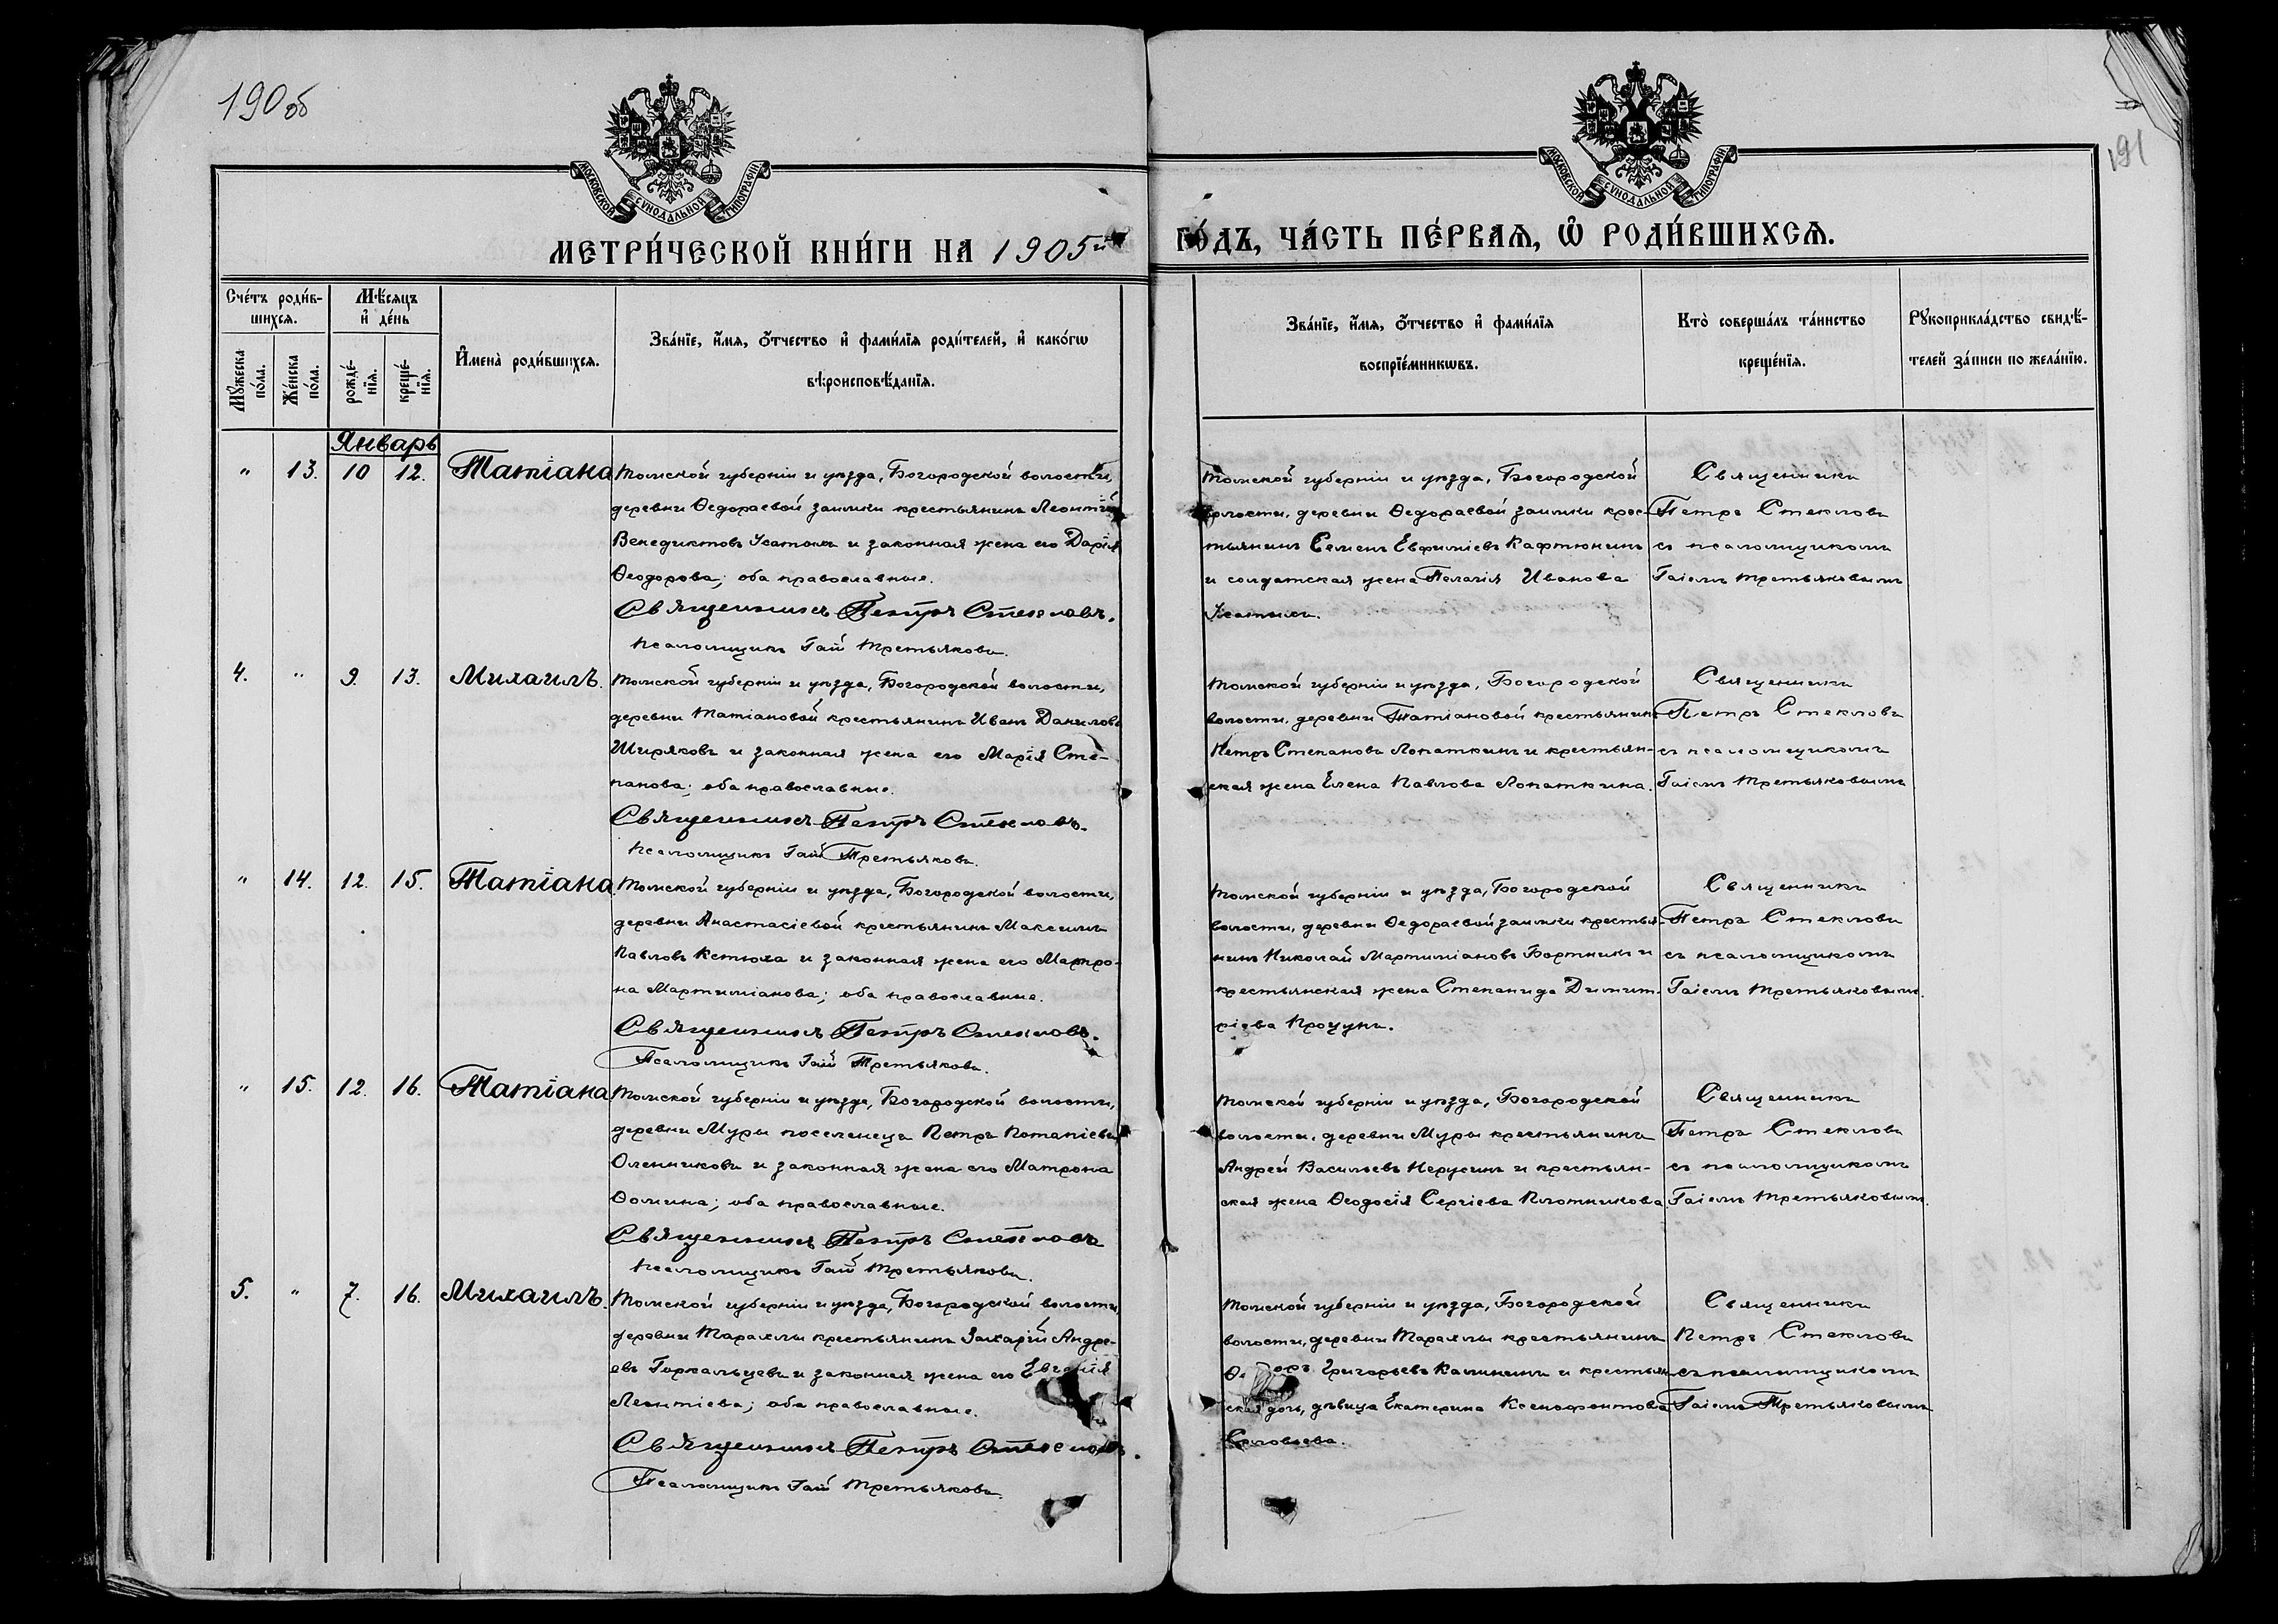 190 об
191
МОСКОВСКОЙ СѴНОДАЛЬНОЙ ТИПОГРАФІИ
МОСКОВСКОЙ СѴНОДАЛЬНОЙ ТИПОГРАФІИ
МЕТРИ́ЧЕСКОЙ КНИ́ГИ НА 1905й
ГО́ДЪ, ЧА́СТЬ ПЕ́РВАѦ, Ѡ РОДИ́ВШИХСѦ.
Сче́тъ роди́в-
шихсѧ.
Мꙋжеска по́ла.
Же́нска по́ла.
Мѣ́сѧцъ
и҆ де́нь
рожде́-
нїѧ.
креще́-
нїѧ.
И҆мена̀ роди́вшихсѧ.
Зва́нїе, и҆́мѧ, ѻ҆́тчество и҆ фами́лїѧ роди́телей, и҆ како́гѡ
вѣроисповѣ́данїѧ.
Зва́нїе, и҆́мѧ, ѻ҆́тчество и҆ фами́лїѧ
воспрїе́мникѡвъ.
Кто̀ соверша́лъ та́инство
креще́нїѧ.
Рꙋкоприкла́дство свидѣ́-
телей за́писи по жела́нїю.
Январь
" 13. 10 12. Татіана
Томской губерніи и уѣзда, Богородской волости,
деревни Ѳедораевой заимки крестьянинъ Леонтій
Венедиктовъ и законная жена его Дарія
Ѳеодорова; оба православные.
Священникъ Петръ Стекловъ.
Псаломщикъ Гаій Третьяковъ.
Томской губерніи и уѣзда, Богородской
волости, деревни Ѳедораевой заимки крес-
тьянинъ Семенъ Евфиміевъ Кафтюнинъ
и солдатская жена Пелагія Иванова
Священникъ
Петръ Стекловъ
съ псаломщикомъ
Гаіемъ Третьяковымъ
4. " 9. 13. Михаилъ.
Томской губерніи и уѣзда, Богородской волости,
деревни Татіановой крестьянинъ Иванъ Даниловъ
Ширяковъ и законная жена его Марія Сте-
панова; оба православные.
Священникъ Петръ Стекловъ.
Псаломщикъ Гаій Третьяковъ.
Томской губерніи и уѣзда, Богородской
волости, деревни Татіановой крестьянинъ
Петръ Степановъ Лопаткинъ и крестьян-
ская жена Елена Павлова Лопаткина.
Священникъ
Петръ Стекловъ
съ псаломщикомъ
Гаіемъ Третьяковымъ
" 14. 12. 15. Татіана
Томской губерніи и уѣзда, Богородской волости,
деревни Анастасіевой крестьянинъ Максимъ
Павловъ и законная жена его Матро-
на Мартиміанова; оба православные.
Священникъ Петръ Стекловъ.
Псаломщикъ Гаій Третьяковъ.
Томской губерніи и уѣзда, Богородской
волости, деревни Ѳедораевой заимки крестья-
нинъ Николай Мартиміановъ Бортникъ и
крестьянская жена Степанида Димит-
ріева Процукъ.
Священникъ
Петръ Стекловъ
съ псаломщикомъ
Гаіемъ Третьяковымъ.
" 15. 12. 16. Татіана
Томской губерніи и уѣзда, Богородской волости,
деревни Муры поселенецъ Петръ Потапіевъ
Оленниковъ и законная жена его Матрона
Ѳомина; оба православные.
Священникъ Петръ Стекловъ
Псаломщикъ Гаій Третьяковъ.
Томской губерніи и уѣзда, Богородской
волости, деревни Муры крестьянинъ
Андрей Васильевъ и крестьян-
ская жена Ѳеодосія Сергіева Плотникова
Священникъ
Петръ Стекловъ
съ псаломщикомъ
Гаіемъ Третьяковымъ.
5. " 7. 16. Михаилъ.
Томской губерніи и уѣзда, Богородской волости
деревни Тарахлы крестьянинъ Захарій Андре-
евъ и законная жена его
Леонтіева; оба православные.
Священникъ Петръ Стекловъ.
Псаломщикъ Гаій Третьяковъ.
Томской губерніи и уѣзда, Богородской
волости, деревни Тарахлы крестьянинъ
Григорьевъ Калининъ и крестьян-
ская дочь, дѣвица Екатерина Ксенофонтова
Соловьева.
Священникъ
Петръ Стекловъ
съ псаломщикомъ
Гаіемъ Третьяковымъ